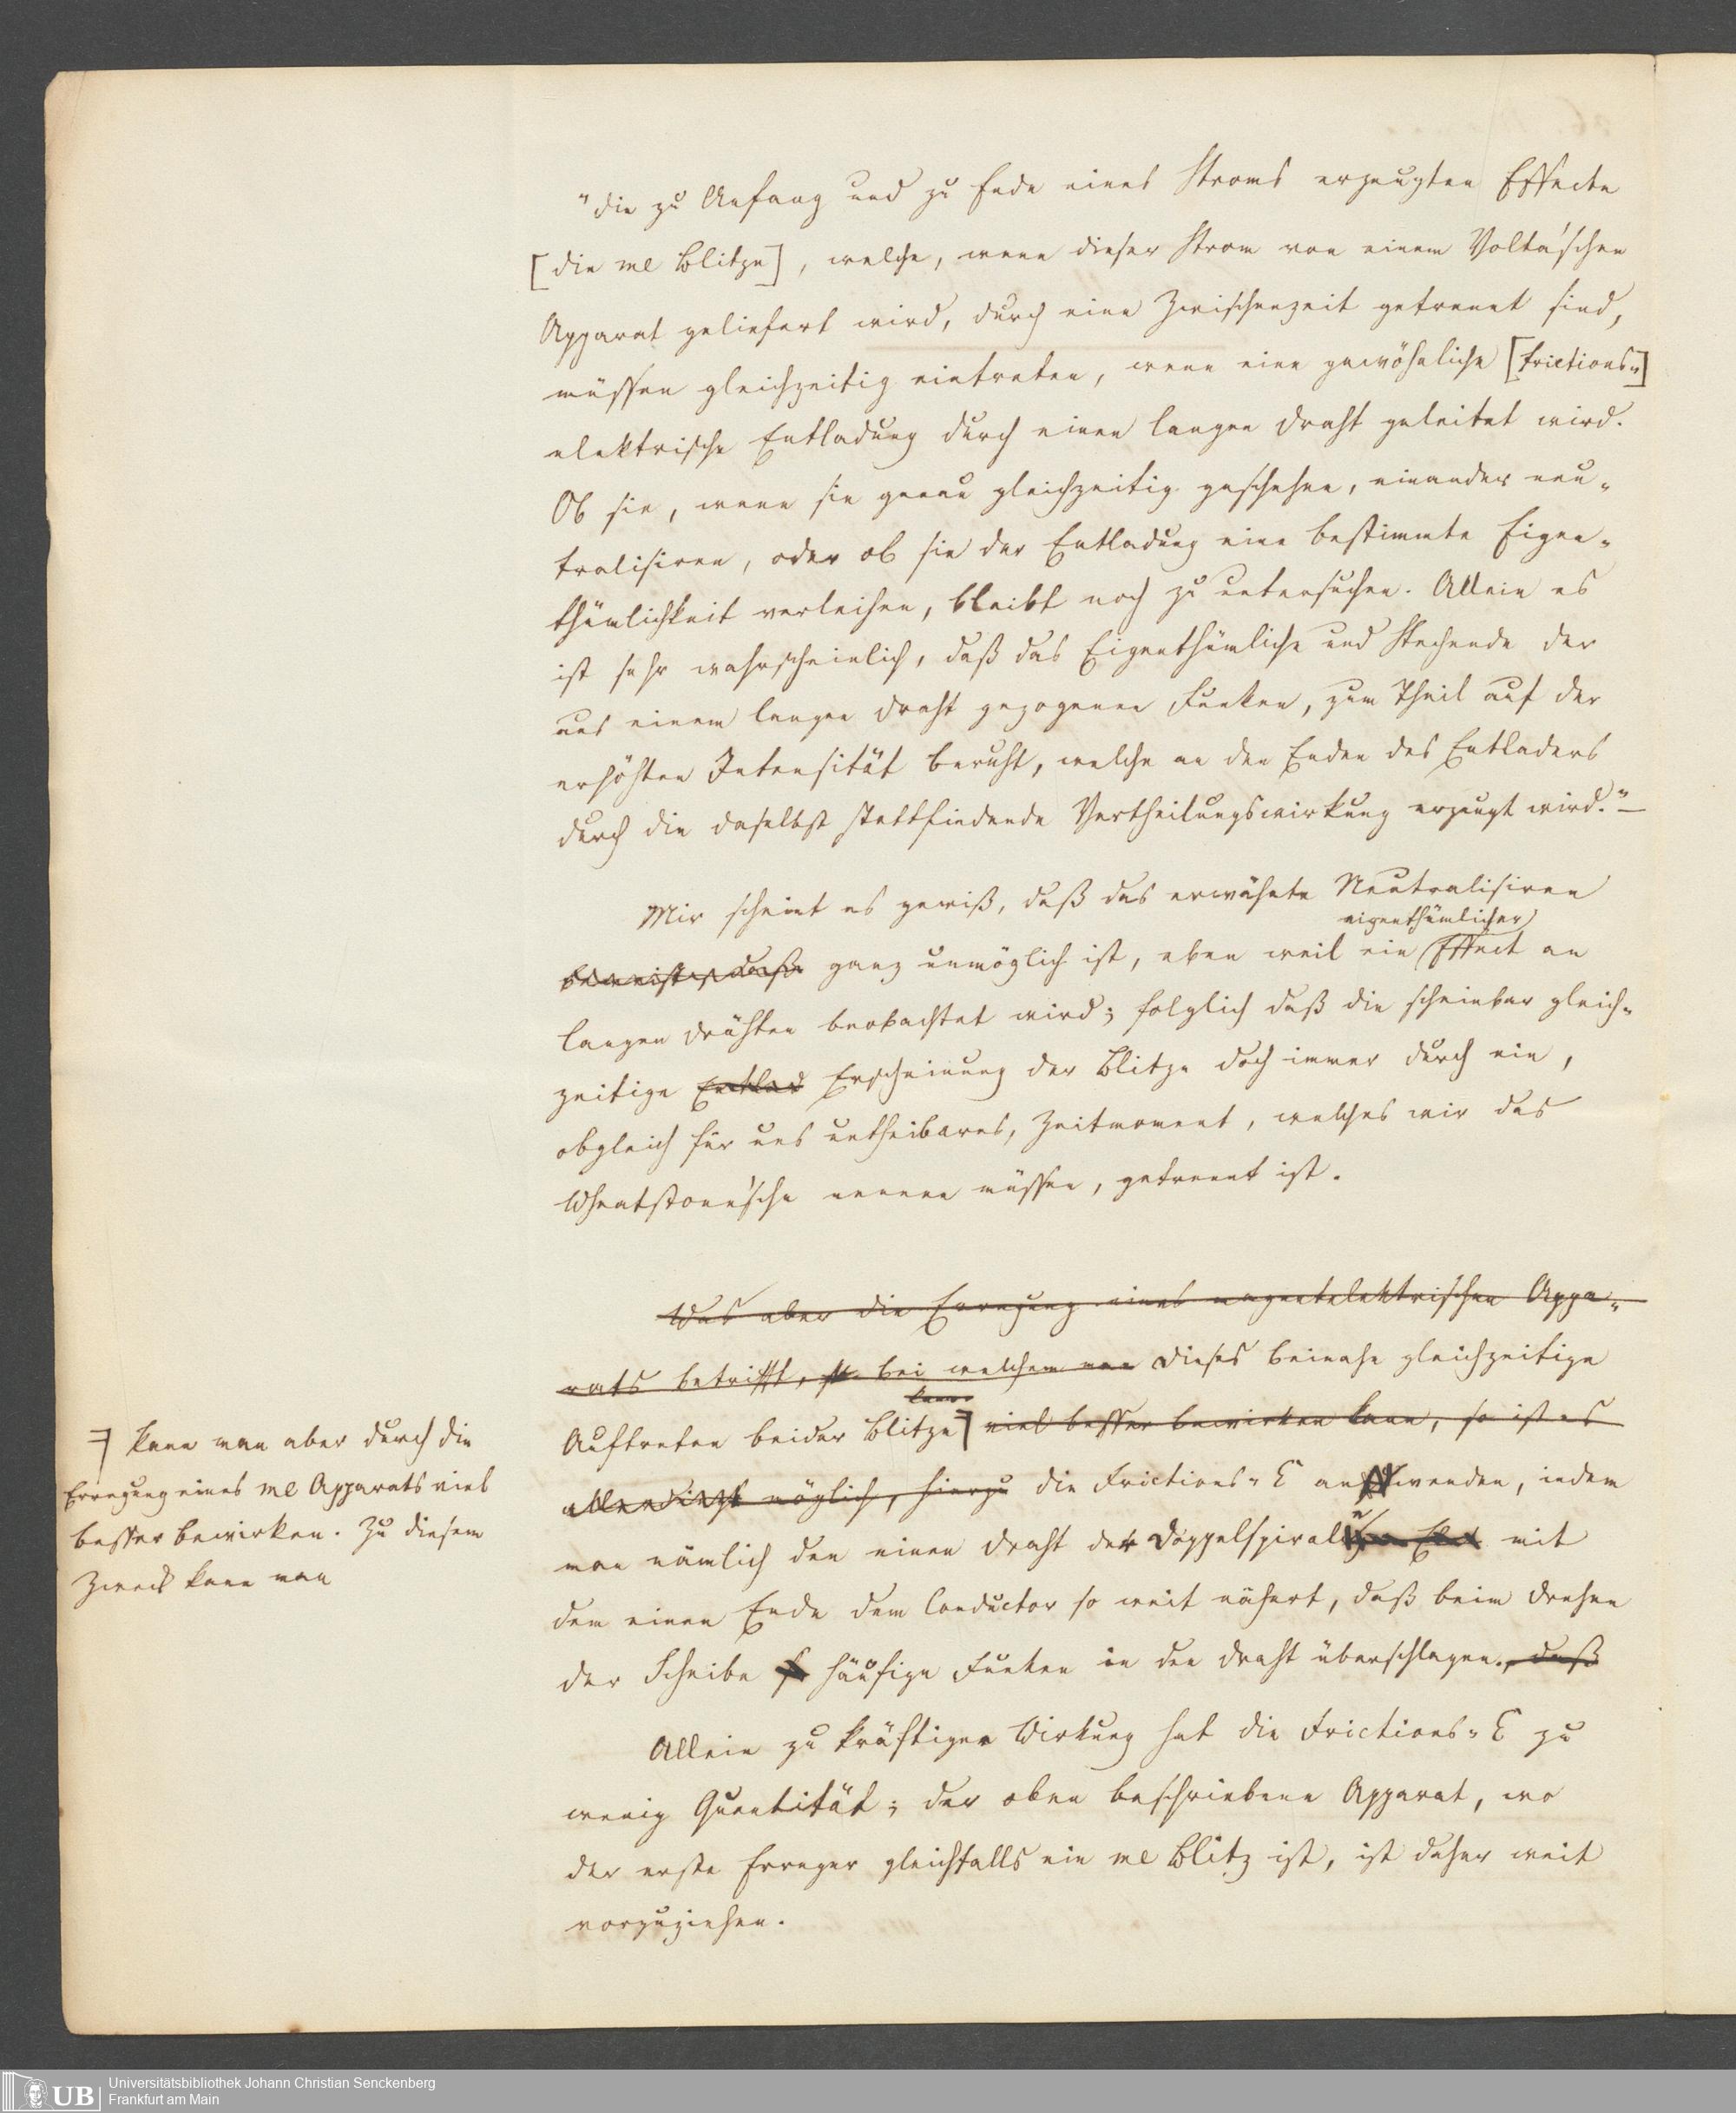 "die zu Anfang und zu Ende eines Stroms erzeugten Effecte
[die me Blitze], welche, wenn dieser Strom von einem Volta'schen
Apparat geliefert wird, durch eine Zwischenzeit getrennt sind,
müssen gleichzeitig eintreten, wenn eine gewöhnliche [frictions-]
elektrische Entladung durch einen langen Draht geleitet wird.
Ob sie, wenn sie genau gleichzeitig geschehen, einander neu-
tralisiren, oder ob sie der Entladung eine bestimmte Eigen-
thümlichkeit verleihen, bleibt noch zu untersuchen. Allein es
ist sehr wahrscheinlich, daß das Eigenthümliche und Stechende der
aus einem langen Draht gezogenen Funken, zum Theil auf der
erhöhten Intensität beruht, welche an den Enden des Entladers
durch die daselbst stattfindende Vertheilungswirkung erzeugt wird."—
Mir scheint es gewiß, daß das erwähnte Neutralisiren
eigenthümlicher
ganz unmöglich ist, eben weil ein Effect an
langen Drähten beobachtet wird; folglich daß die scheinbar gleich-
zeitige Entlad Erscheinung der Blitze doch immer durch ein,
obgleich für uns untheibares, Zeitmoment, welches wir das
Wheatstone'sche nennen müssen, getrennt ist.
Was aber die Erregung eines magnetelektrischen Appa-
rats betrifft, bei welchem man dieses beinahe gleichzeitige
kann
Auftreten beider Blitze viel besser bewirken kann, so ist es
allerdings möglich, hierzu die Frictions-E anwenden, indem
man nämlich den einen Draht der Doppelspirale mit
dem einen Ende dem Conductor so weit nähert, daß beim Drehen
der Scheibe häufige Funken in den Draht überschlagen., daß
Allein zu kräftiger Wirkung hat die Frictions-E zu
wenig Quantität; der oben beschriebene Apparat, wo
der erste Erreger gleichfalls ein me Blitz ist, ist daher weit
vorzuziehen.
kann man aber durch die
Erregung eines me Apparats viel
besser bewirken. Zu diesem
Zweck kann man
UB
Universitätsbibliothek Johann Christian Senckenberg
Frankfurt am Main